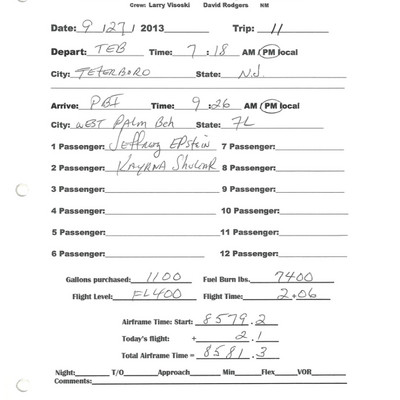 Crew: Larry Visoski David Rodgers NM
Date: 9 /27/ 2013 Trip: 11
Depart: TEB Time: 7 : 18 AM PM local
City: TETERBORO State: N.J.
Arrive: PBI Time: 9 : 26 AM PM local
City: WEST PALM Bch State: FL
1 Passenger: Jeffrey EPStein 7 Passenger:
2 Passenger: 8 Passenger:
3 Passenger: 9 Passenger:
4 Passenger: 10 Passenger:
5 Passenger: 11 Passenger:
6 Passenger: 12 Passenger:
Gallons purchased: 1100 Fuel Burn lbs. 7400
Flight Level: FL400 Flight Time: 2.06
Airframe Time: Start: 8579.2
Today's flight: + 2.1
Total Airframe Time = 8581.3
Night: T/O Approach Min Flex VOR
Comments: